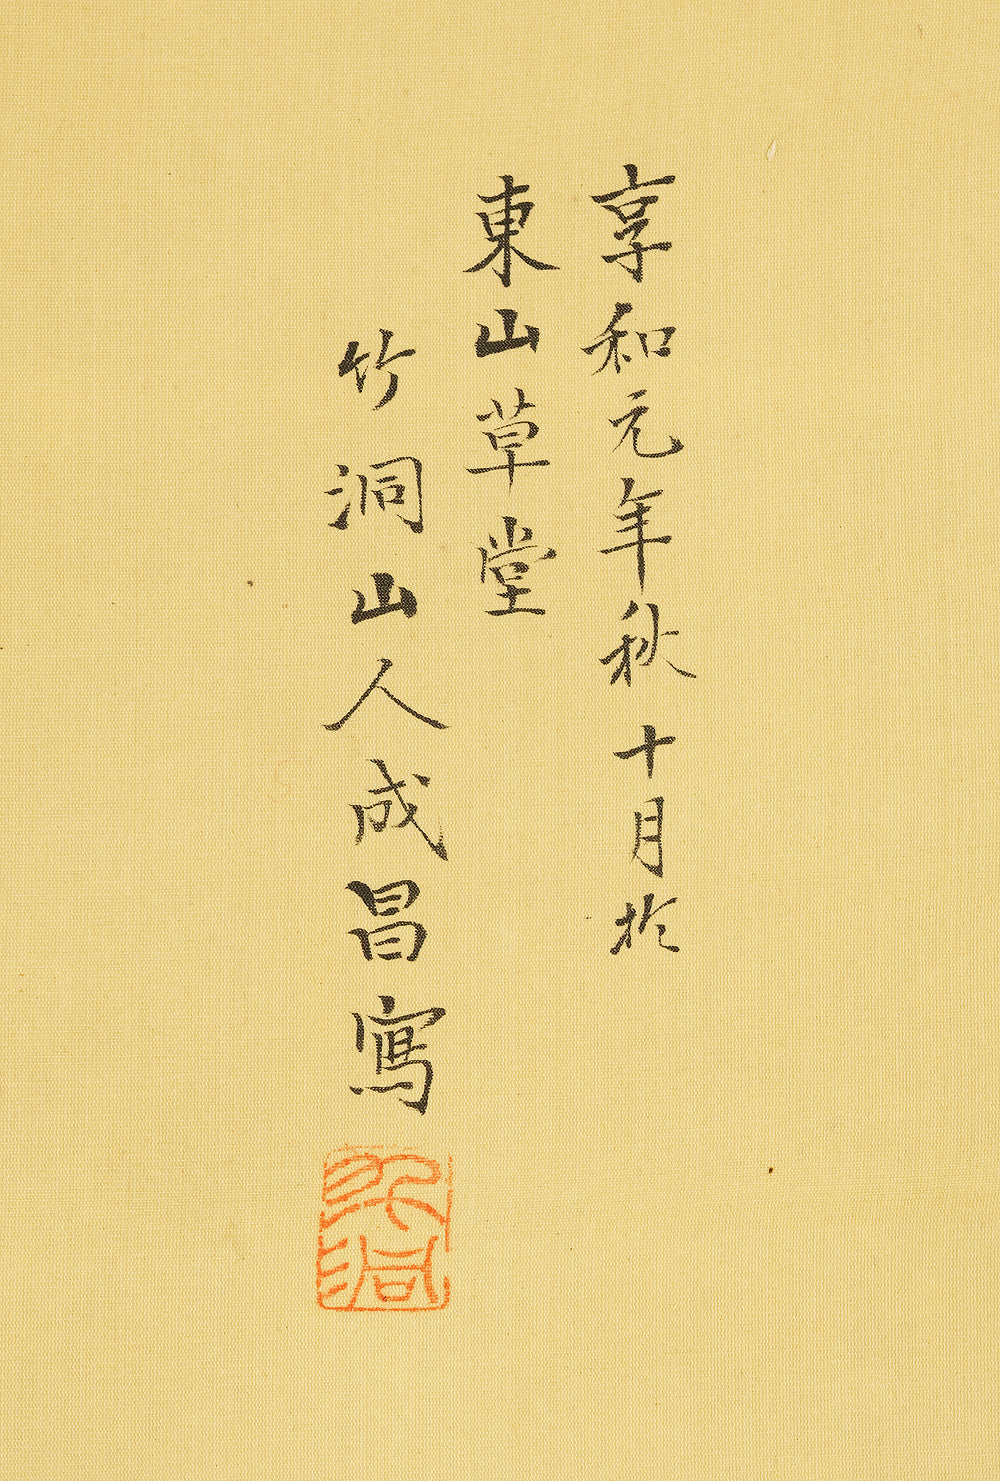 享和元年秋十月於
東山草堂
竹洞山人成昌寫